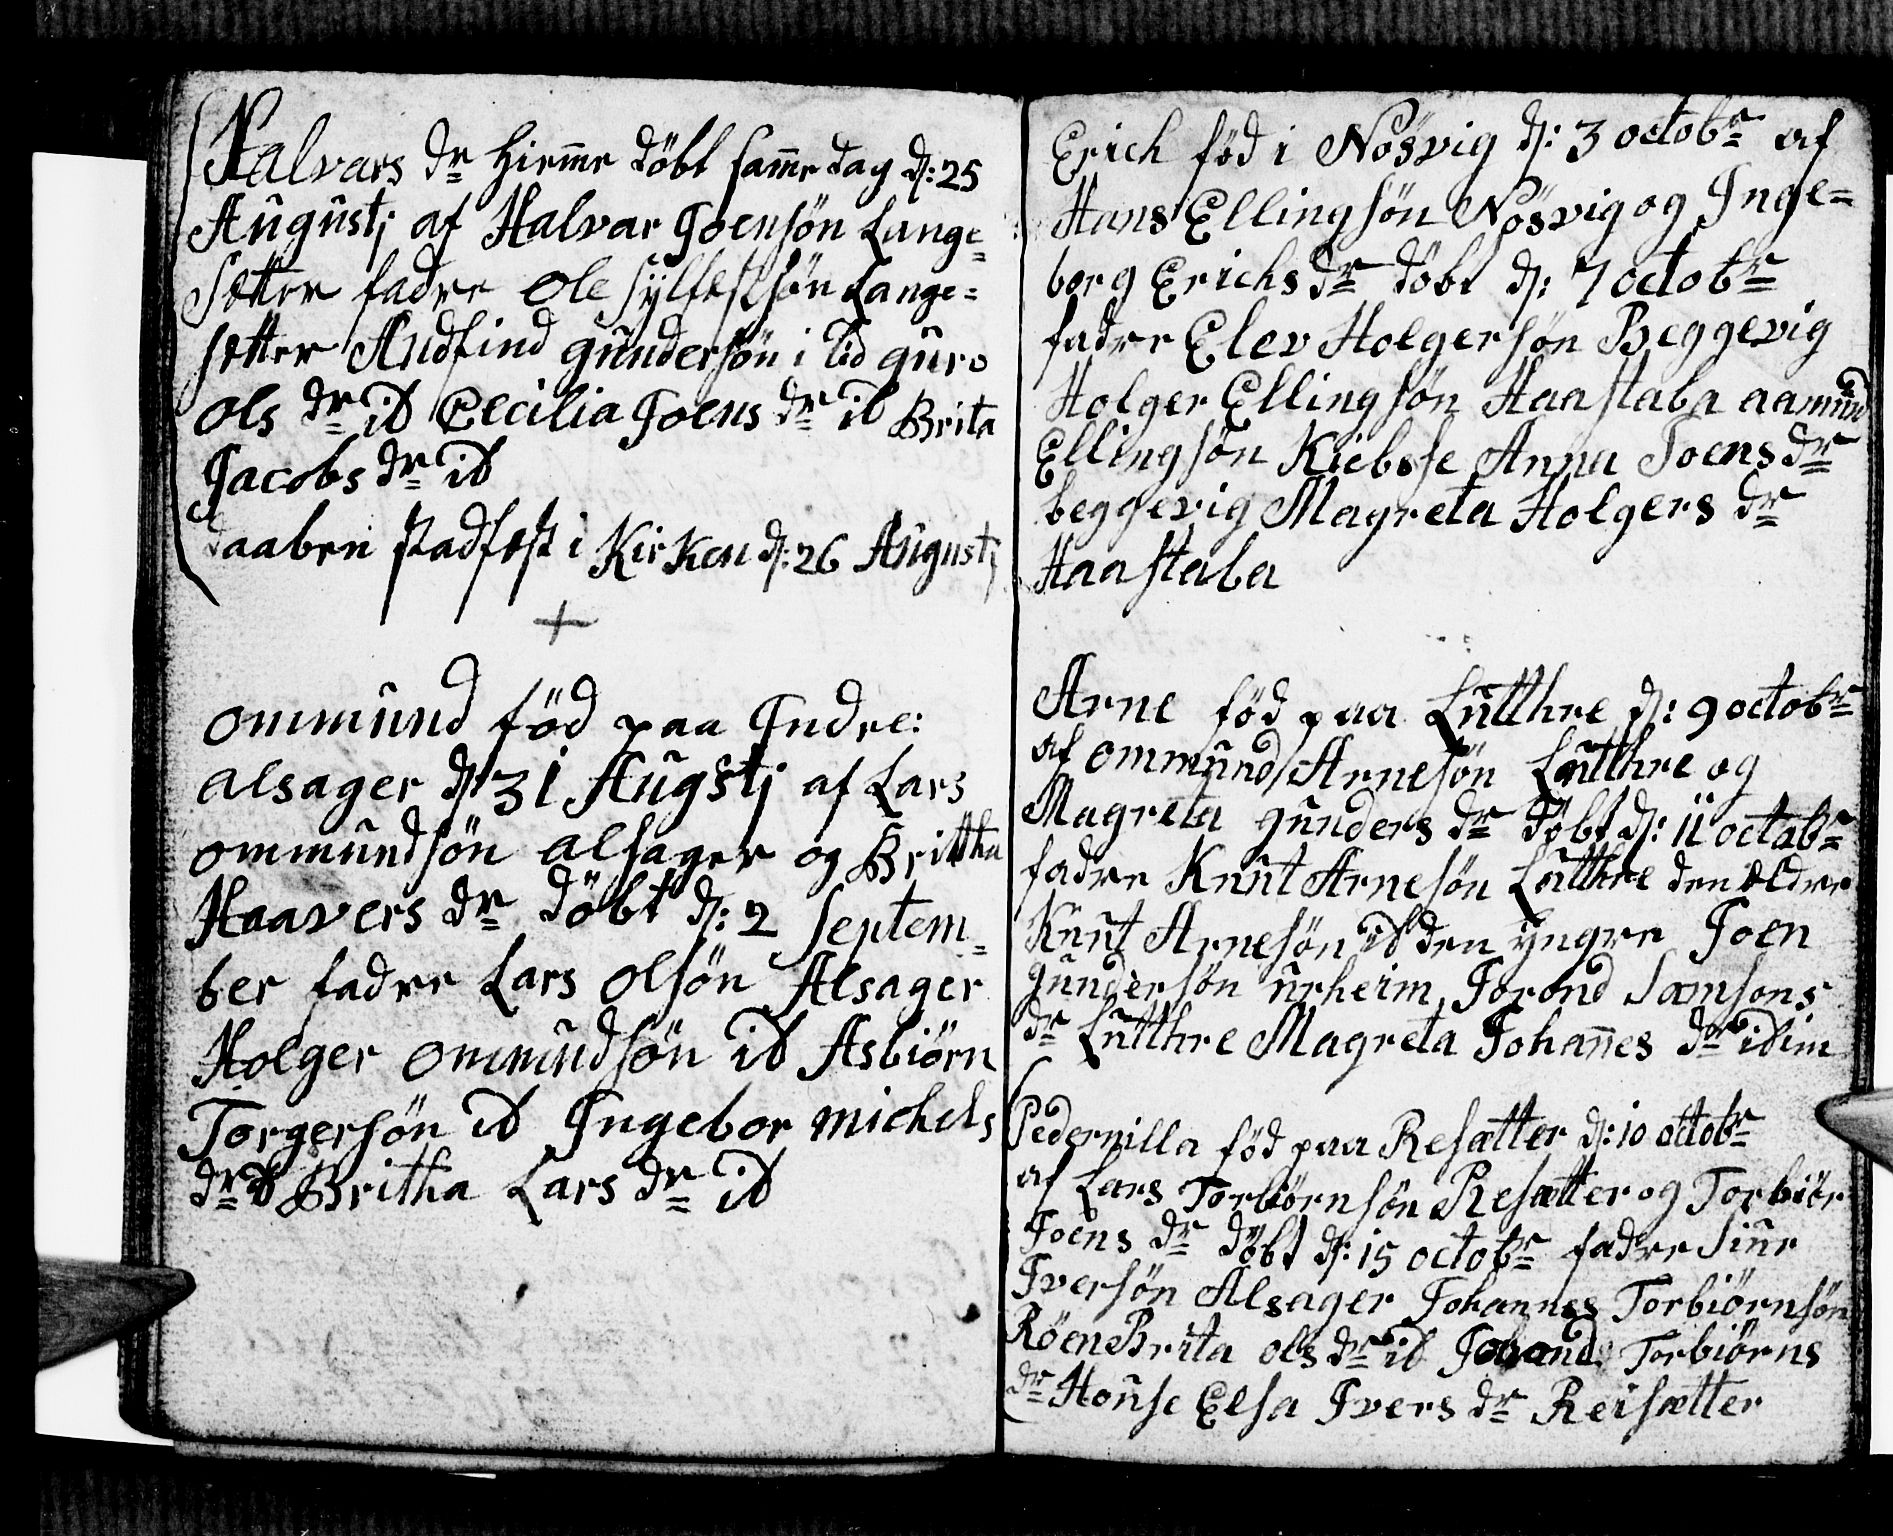 Halvars dr hiemme döbt samme dag d: 25
Augustj af Halvar Joensön Lange=
sætter fadre Ole Sylfestsön Lange=
setter Andfind gundersön i lid guro
ols dr id Cecilia Joens dr id Brita
Jacobs dr id
daaben stadfest i Kirken d: 26 Augustj
+
ommund föd paa Indre:
alsager d 31 Augstj af Lars
ommundsön alsager og Britha
Haavers dr döbt d: 2 Septem=
ber fadre Lars olsön Alsager
Holger ommundsön id Asbiörn
Torgersön id Ingebor michels
dr id Britha Lars dr id
Erich föd i Nösvig d: 3 octobr af
Hans Ellingsön Nösvig og Inge=
borg Erichs dr döbt d: 7 octobr
fadre Elev Holgersön Beggevig
Holger Ellingsön Haastaba aamund
Ellingsön Kiebsse Anna Joens dr
beggevig Magreta Holgers dr
Haastaba
Arne föd paa Lutthre d: 9 octobr
af ommund Arnesön Lutthre og
Magreta gunders dr döbt d: 11 octobr
fadre Knut Arnesön Lutthre den ældre
Knut Arnesön id den yngre Joen
gundersön urheim Jorond Samsons
dr Lutthre Magreta Johannes dr idim
Pedernilla föd paa Resætter d: 10 octobr
af Lars Torbiörnsön Resætter og Torbiör
Joens dr döbt d: 15 octobr fadre Siur
Iversön Alsager Johannes Torbiörnsön
Röen Brita ols dr id Torbiörns
dr House Elsa Ivers dr Reisætter